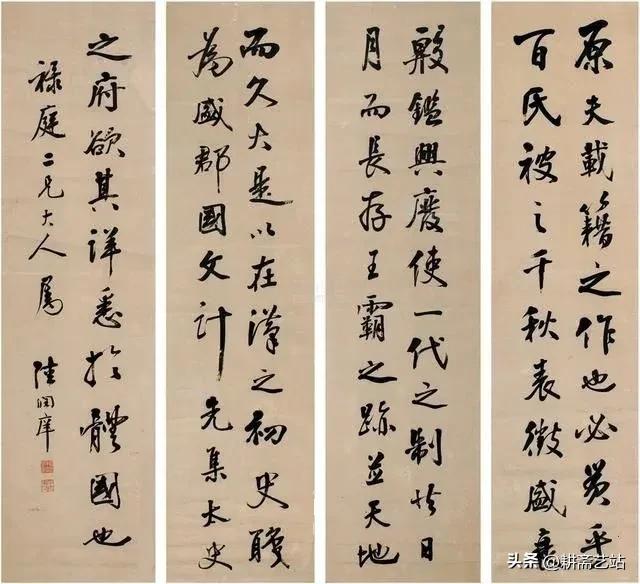 原夫載籍之作也必貫乎
百氏被之千秋表徵盛衰
殷鑑興廢使一代之制共日
月而長存王霸之跡並天地
而久大是以在漢之初史職
為盛郡國文計先集太史
之府欲其詳悉於體國也
祿庭二兄大人屬 陸潤庠
头条 @耕斋艺站